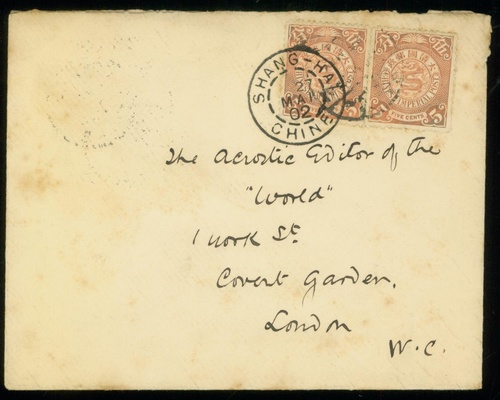 SHANG-HAI
27
MA
02
CHINE
IMPERIAL
5
5
FIVE CENTS
The Acrostic Editor of the
"World"
1 York St.
Covent Garden.
London
W.C.